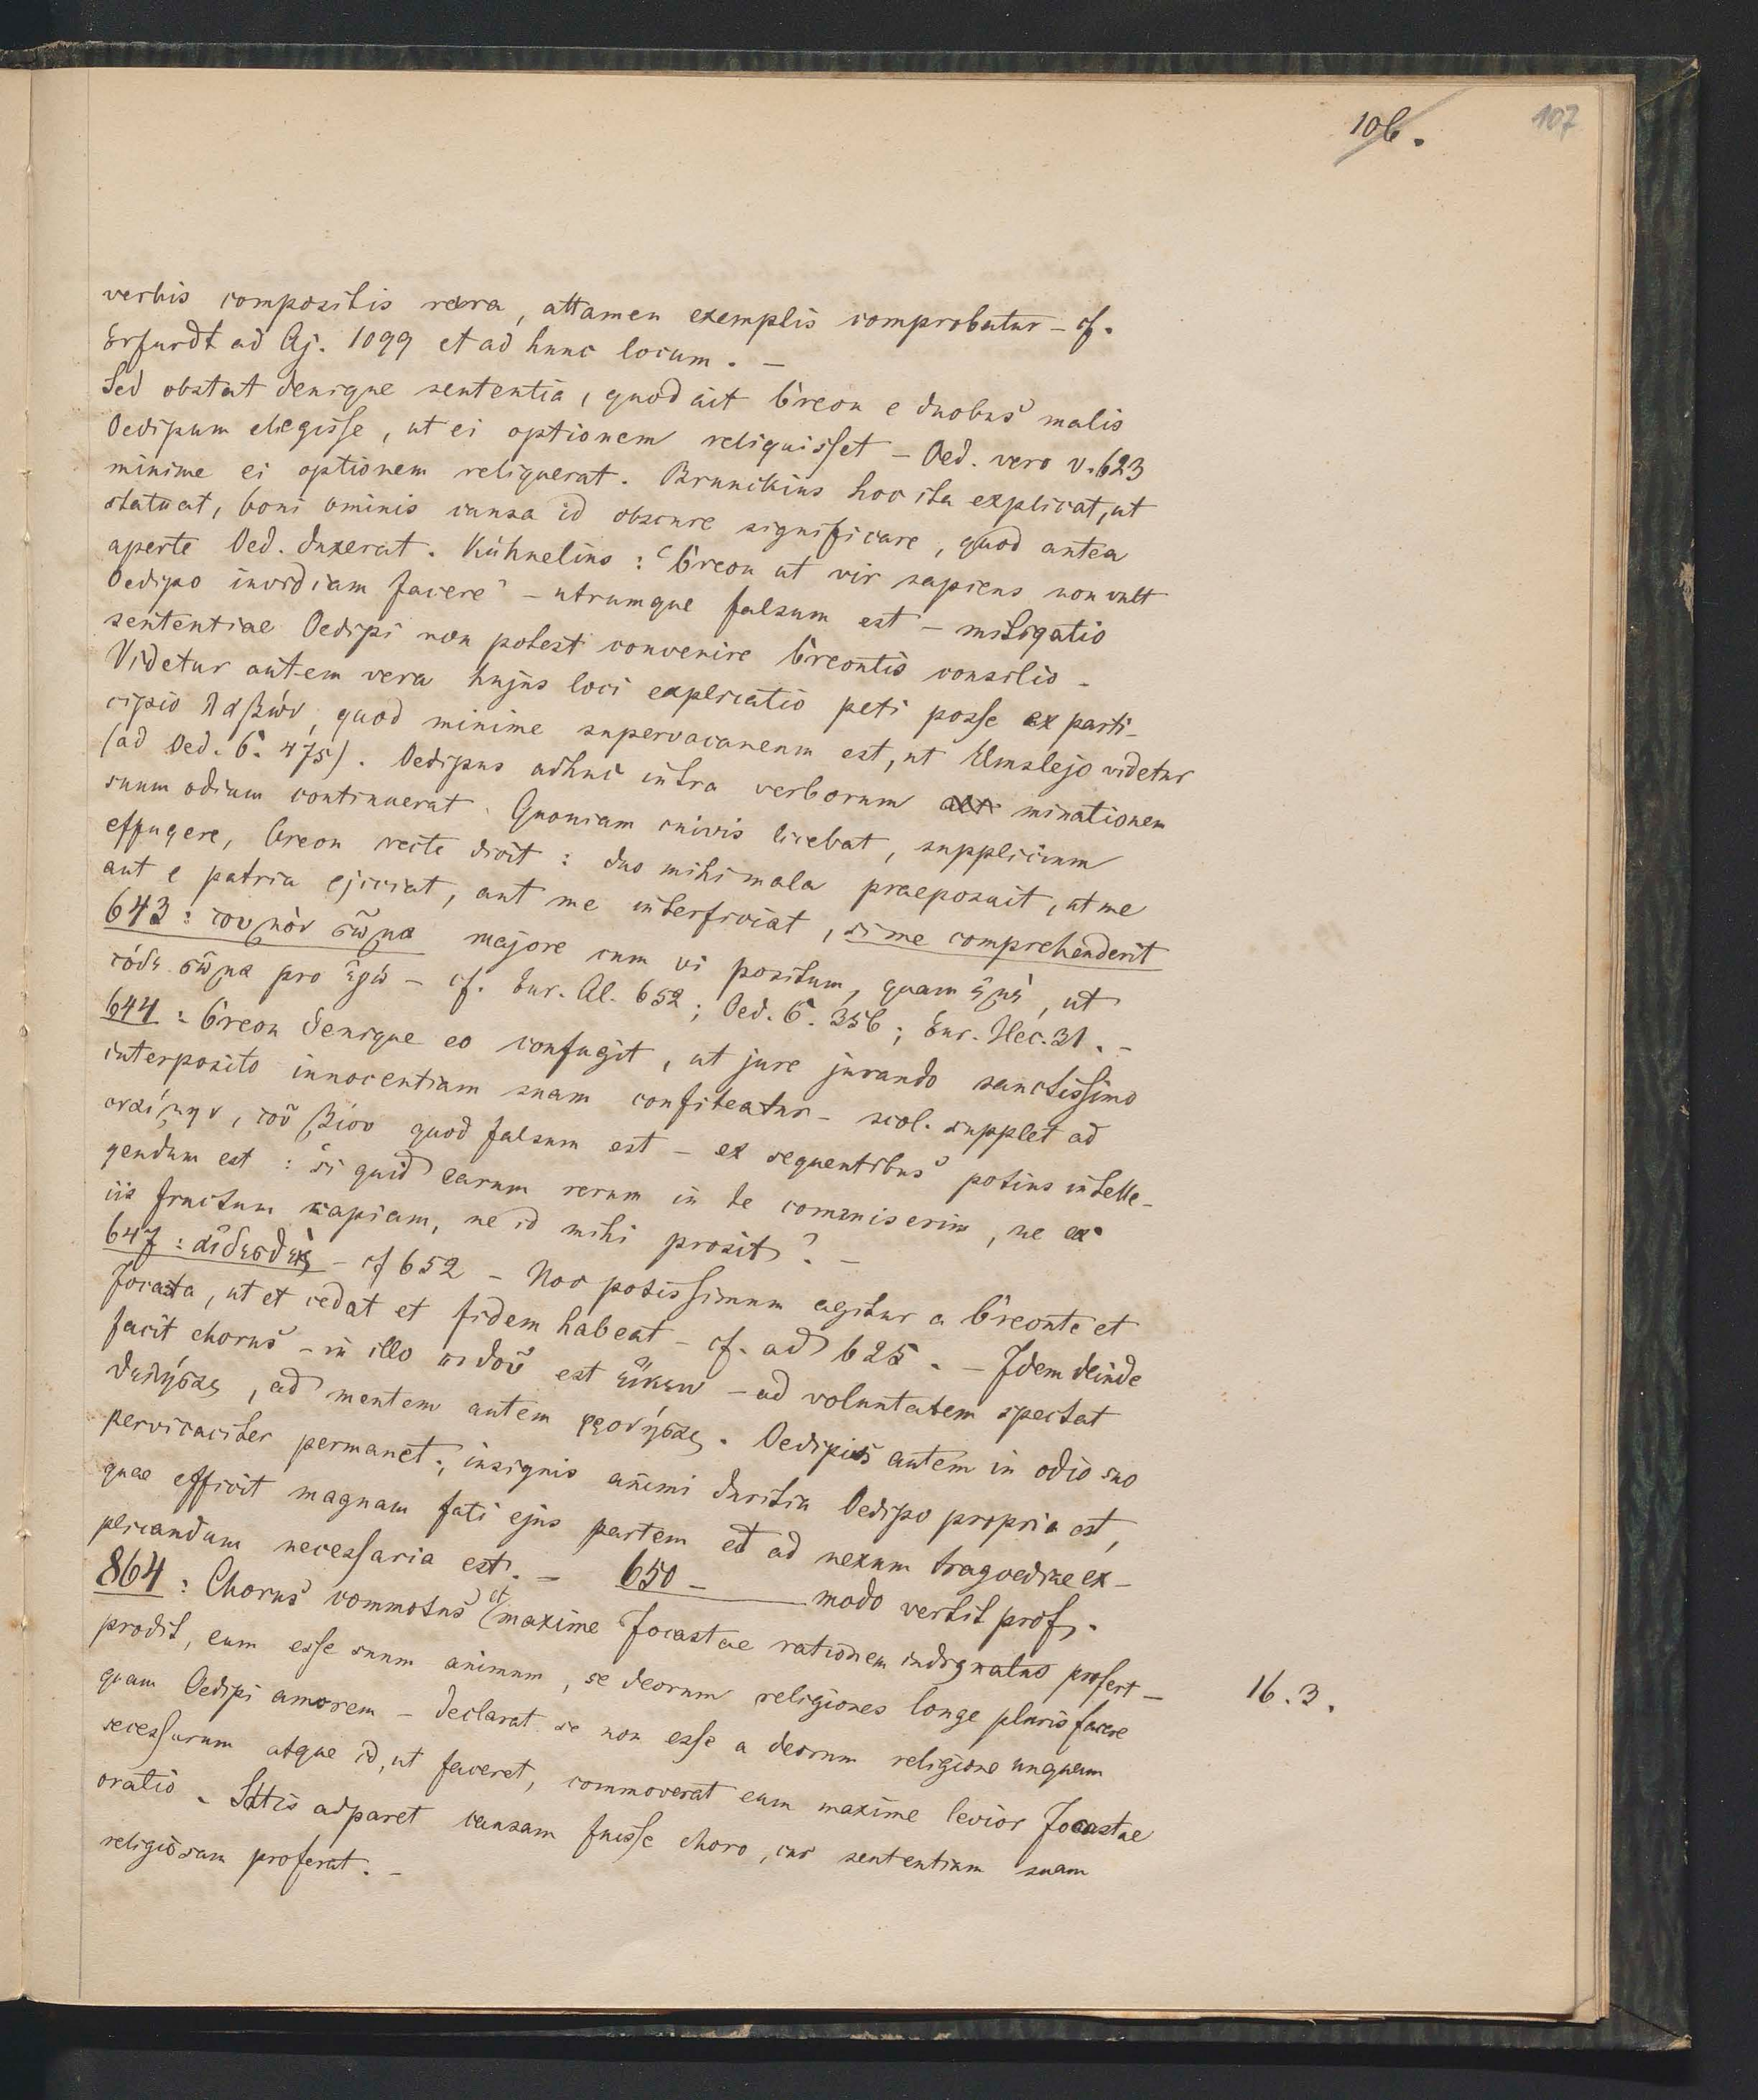 106.
107
verbis compositis rara, attamen exemplis comprobatur – cf.
Erfurdt ad Aj. 1099 et ad hunc locum. –
Sed obstat denique sententia, quod ait Creon e duobus malis
Oedipum elegisse, ut ei optionem reliquisset – Oed. vero v. 623
minime ei optionem reliquerat. Brunckius hoc ita explicat, ut
statuat, boni ominis causa id obscure significare, quod antea
aperte Oed. dixerat. Kühnelius: "Creon ut vir sapiens non vult
Oedipo invidiam facere" – utrumque falsum est – mitigatio
sententiae Oedipi non potest convenire Creontis consilio –
Videtur autem vera hujus loci explicatio peti posse ex parti–
cipio λαβών, quod minime supervacaneum est, ut Elmslejo videtur
(ad Oed. C. 475). Oedipus adhuc intra verborum minationem
suum odium continuerat. Quoniam cuivis licebat, supplicium
effugere, Creon recte dicit: duo mihi mala praeposuit, ut me
aut e patria ejiciat, aut me interficiat, si me comprehenderit
643: τοὐμὸν σῶμα majore cum vi positum, quam ἐμὲ, ut
τόδε σῶμα pro ἐγώ – cf. Eur. Al. 652; Oed. C. 356; Eur. Hec. 31. –
644: Creon denique eo confugit, ut jure jurando sanctissimo
interposito innocentiam suam confiteatur – scol. supplet ad
ὀναίμην, τοῦ βίου quod falsum est – ex sequentibus potius intelle–
gendum est: si quid earum rerum in te commiserim, ne ex
iis fructum capiam, ne id mihi prosit? –
647: αἰδεσθεὶς – cf 652 – Hoc potissimum agitur a Creonte et
Jocasta, ut et cedat et fidem habeat – cf. ad 625. – Idem deinde
facit chorus – in illo πιθοῦ est εἴκειν – ad voluntatem spectat
θελήσας, ad mentem autem φρονήσας. Oedipus autem in odio suo
pervicaciter permanet; insignis animi duritia Oedipo propria est,
quae efficit magnam fati ejus partem et ad nexum tragoediae ex–
plicandum necessaria est. – 650 – modo vertit prof.
864: Chorus commotus et maxime Jocastae rationem indignatus profert –
prodit, eum esse suum animum, se deorum religiones longe pluris facere
16.3.
quam Oedipi amorem – declarat se non esse a deorum religione unquam
secessurum atque id, ut faceret, commoverat eum maxime levior Jocastae
oratio. Satis adparet causam fuisse choro, cur sententiam suam
religiosam proferat. –